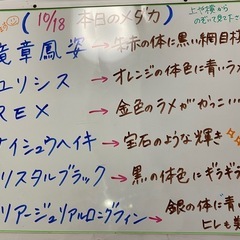 (10/18 本日のメダカ)
上や横から
のぞいて見て下さ
竜章鳳姿→朱赤の体に黒い網目柄
ユリシス→オレンジの体色に青いラメ
REX→金色のラメがかっこいい
ナイシュウヘイキ→宝石のような輝き
リスタルブラック→黒の体色にギラギラ
リアージュリアルロングフィン→銀の体に青い
ヒレも美